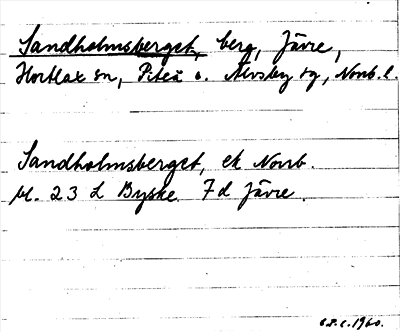 Sandholmsberget, berg, Jävre,
Hortlax sn, Piteå o. Älvsby tg, Norrb. l.
Sandholmsberget, ek Norrb.
bl. 23 L Byske 7d Jävre.
C.P.C. 1960.